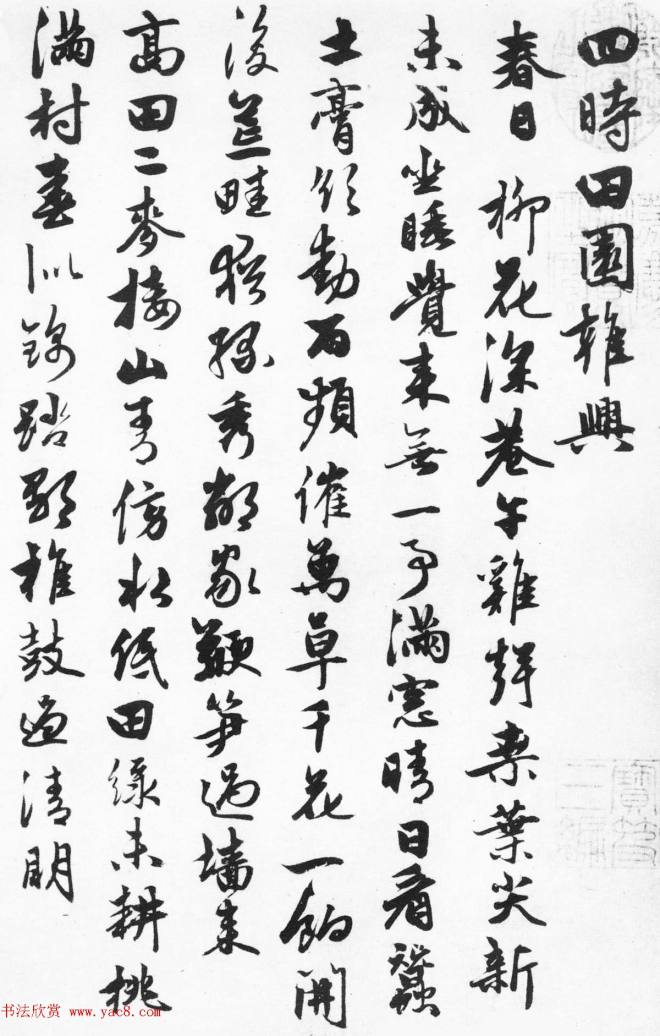 四時田園雜興
春日 柳花深巷午雞聲桑葉尖新
未成坐睡覺來無一事滿窓晴日看蠶
土膏欲動雨頻催萬草千花一餉開
後荒畦猶綠秀鄰家鞭笋過墻來
高田二麥接山青傍水低田綠未耕桃
滿村春似錦踏歌椎鼓過清明
寶笈
三編
书法欣赏 www.yac8.com